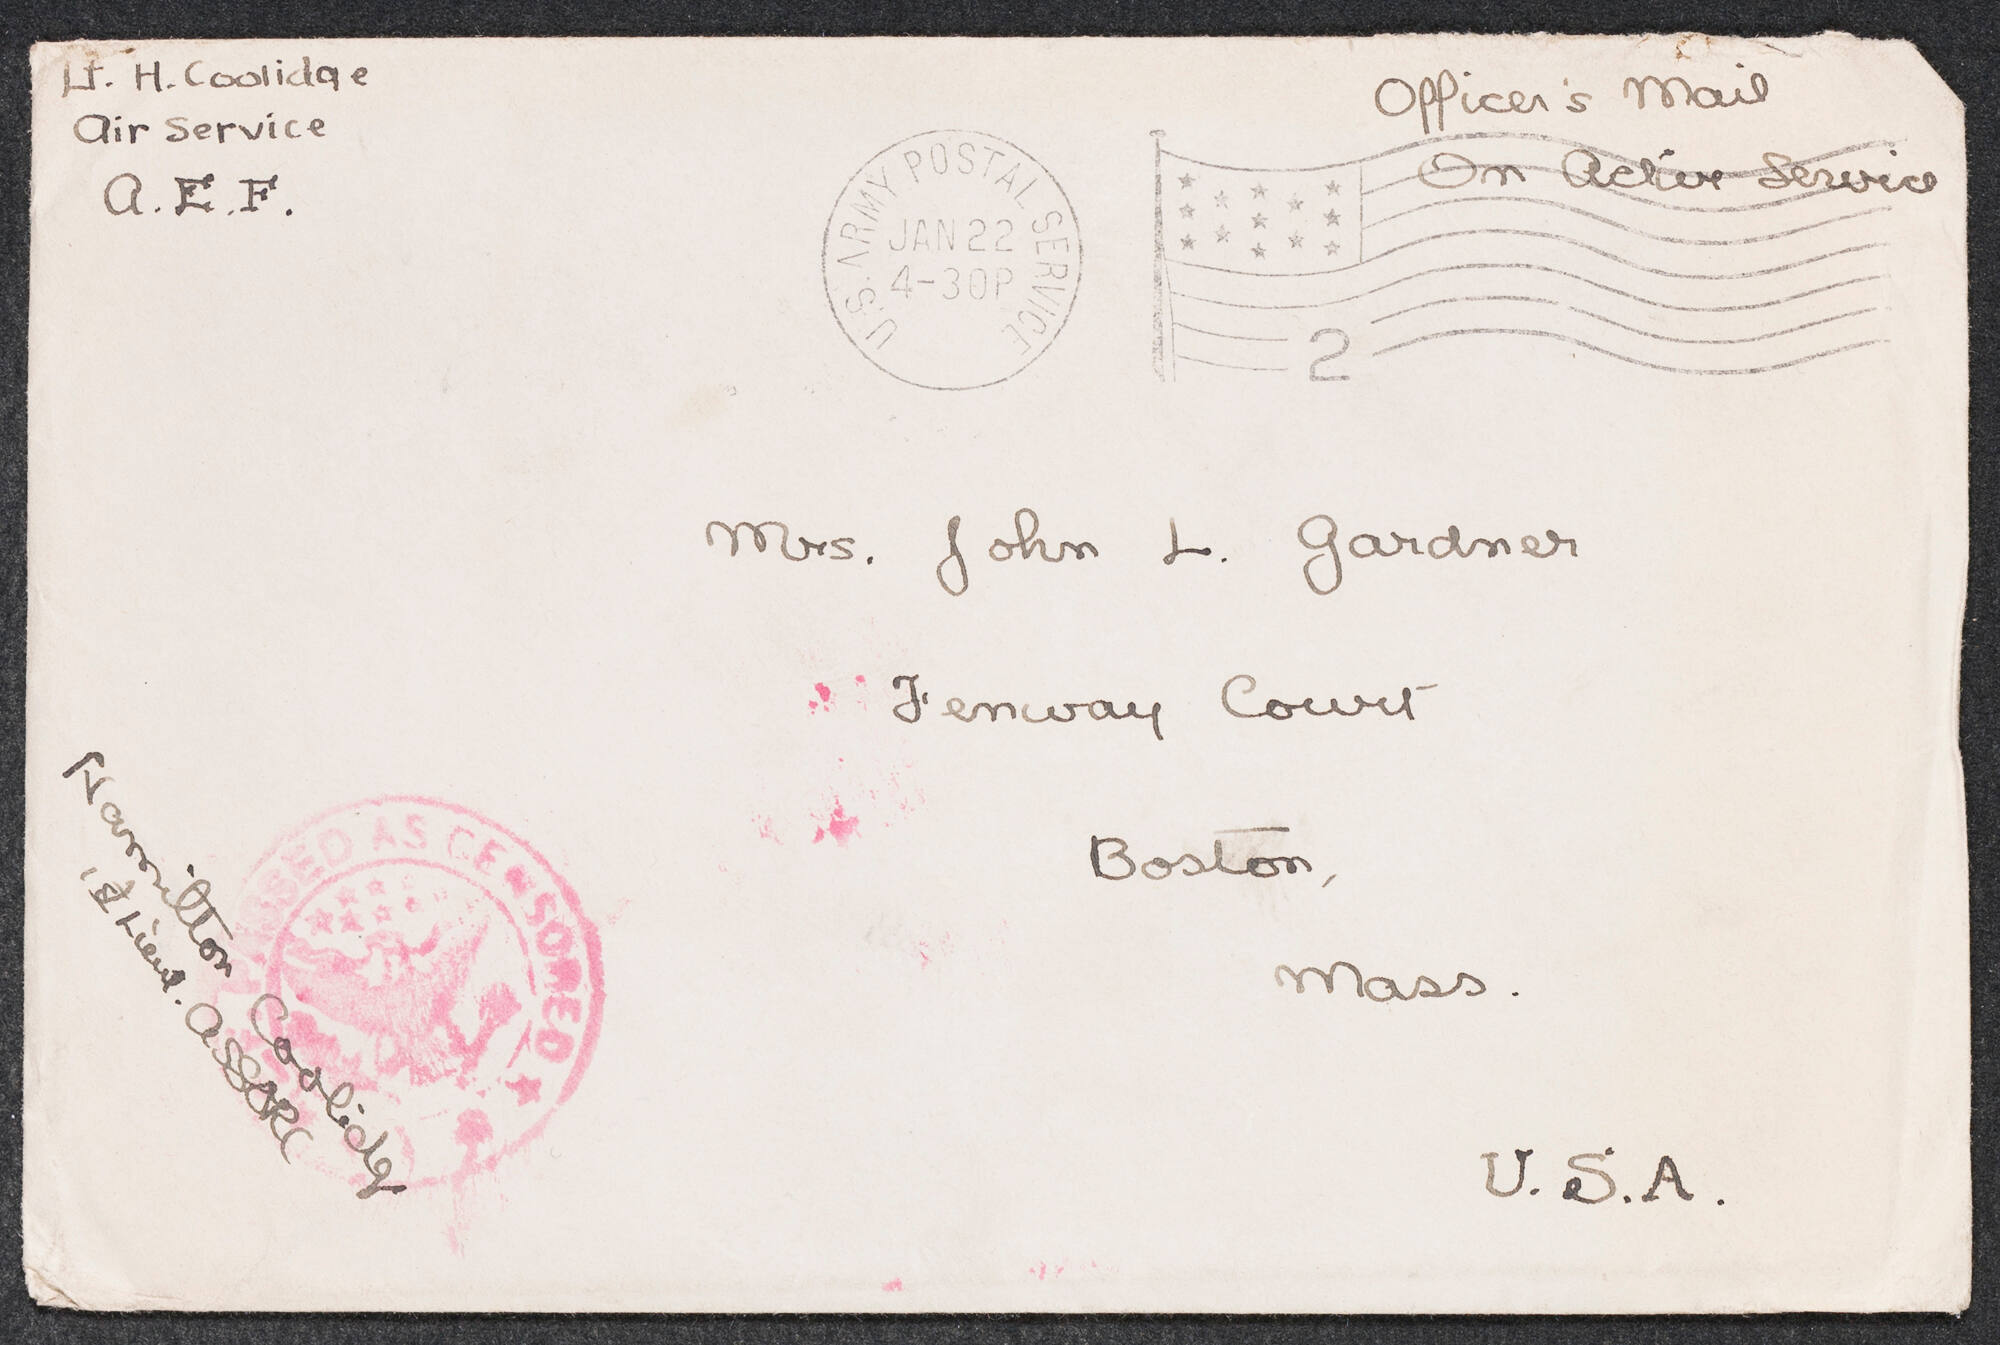 Lt. H. Coolidge
Air Service
A. E. F.
Officer's Mail
On Active Service
U.S. ARMY POSTAL SERVICE
JAN 22
4-30P
2
Mrs. John L. Gardner
Fenway Court
Boston,
Mass.
U. S. A.
PASSED AS CENSORED
Hamilton Coolidge
1st Lieut. ASSORC